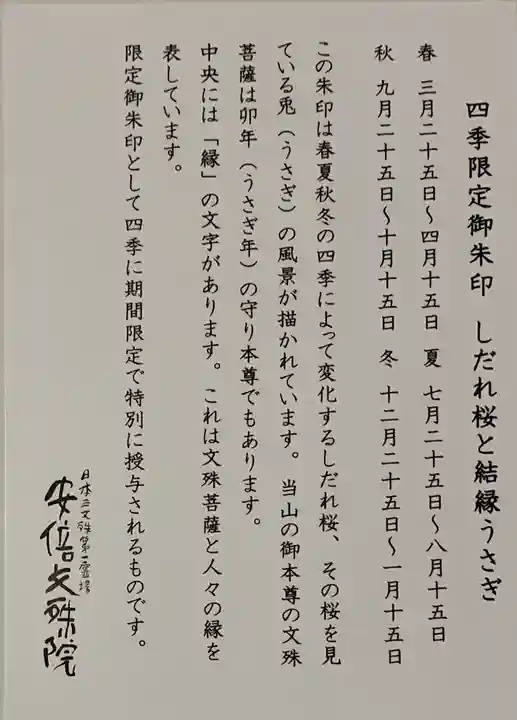 四季限定御朱印 しだれ桜と結縁うさぎ
春 三月二十五日〜四月十五日 夏 七月二十五日〜八月十五日
秋 九月二十五日〜十月十五日 冬 十二月二十五日〜一月十五日
この朱印は春夏秋冬の四季によって変化するしだれ桜、その桜を見
ている兎（うさぎ）の風景が描かれています。当山の御本尊の文殊
菩薩は卯年（うさぎ年）の守り本尊でもあります。
中央には「縁」の文字があります。これは文殊菩薩と人々の縁を
表しています。
限定御朱印として四季に期間限定で特別に授与されるものです。
日本三文殊第一霊場
安倍文殊院